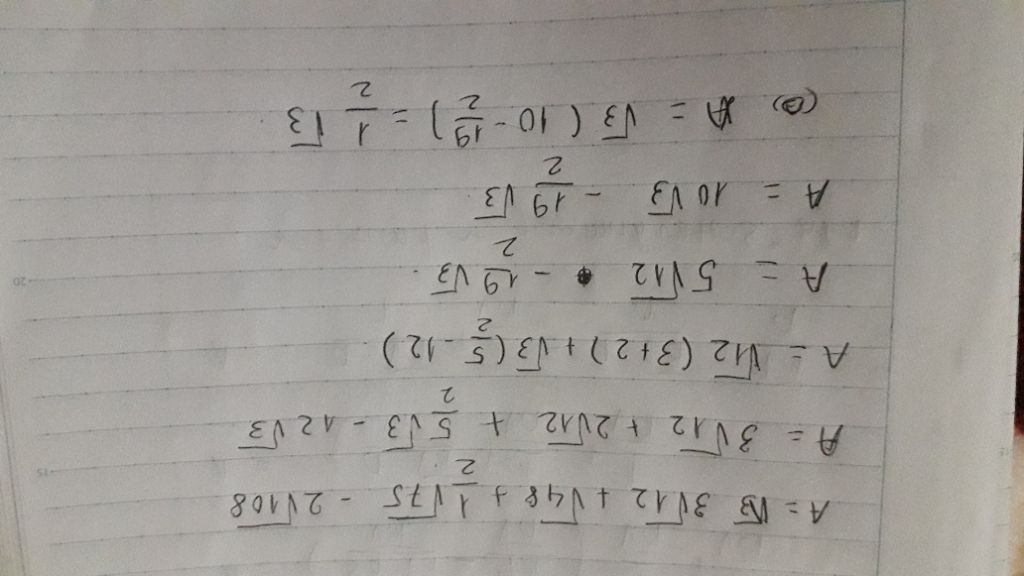 A = 3√12 + √48 + 1/2 √75 - 2√108
A = 3√12 + 2√12 + 5/2 √3 - 12√3
A = √12 (3+2) + √3 (5/2 - 12)
A = 5√12 - 19/2 √3
A = 10√3 - 19/2 √3
(=) A = √3 (10 - 19/2) = 1/2 √3
15
20